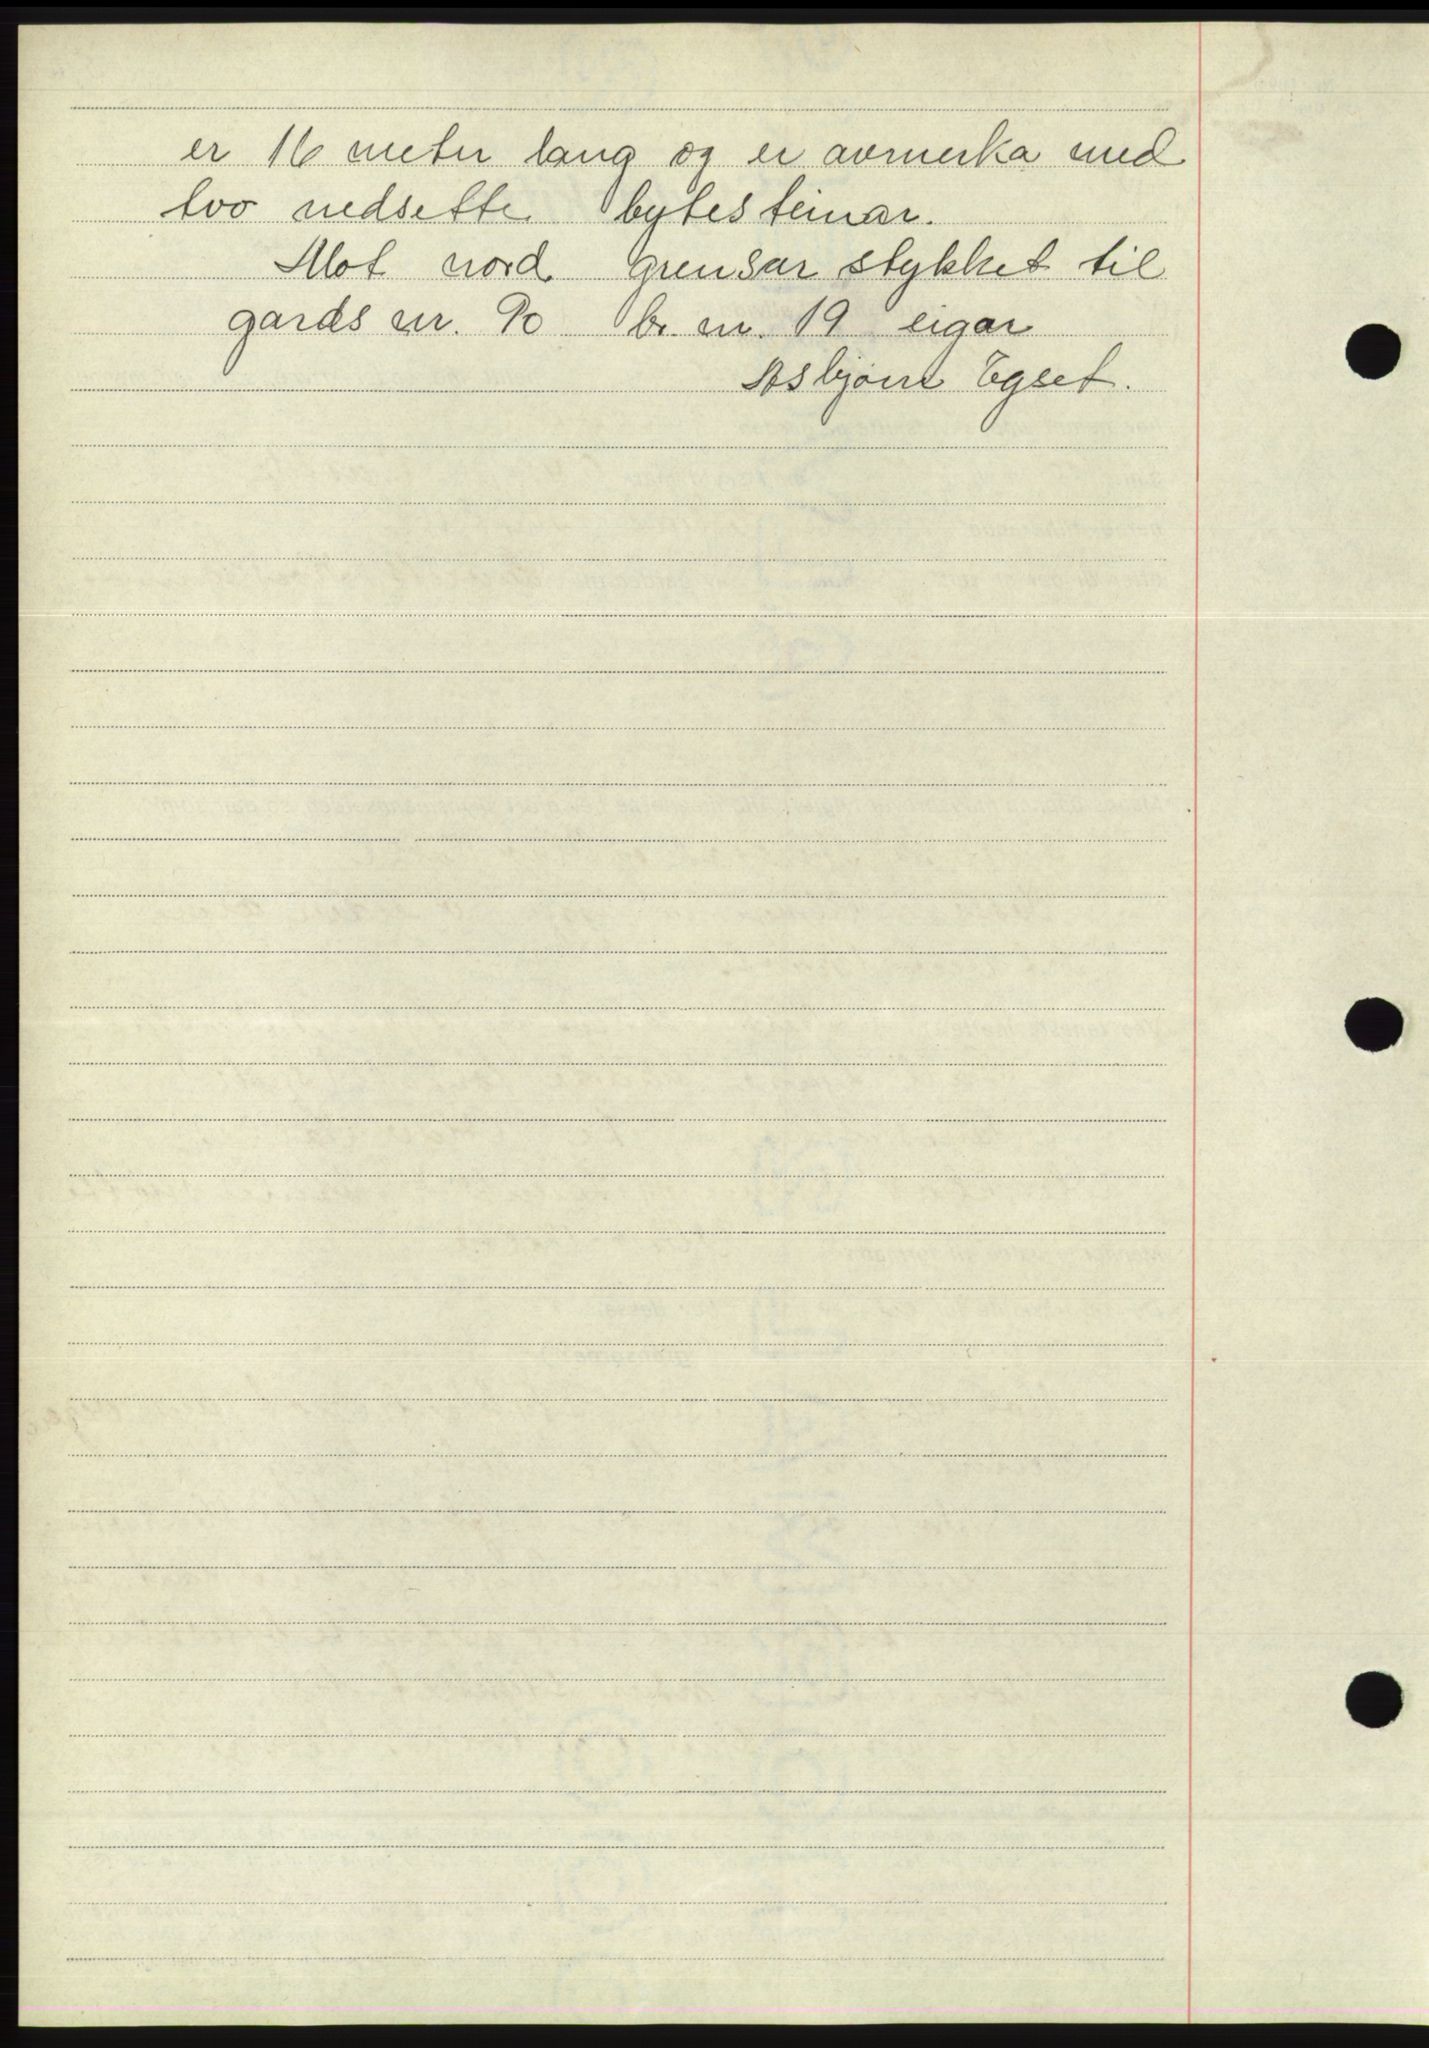 er 16 meter lang og er avmerka med
tvo nedsette bytesteinar.
Mot nord grensar stykket til
gards nr. 90 br. nr. 19 eigar
Asbjørn Egset.